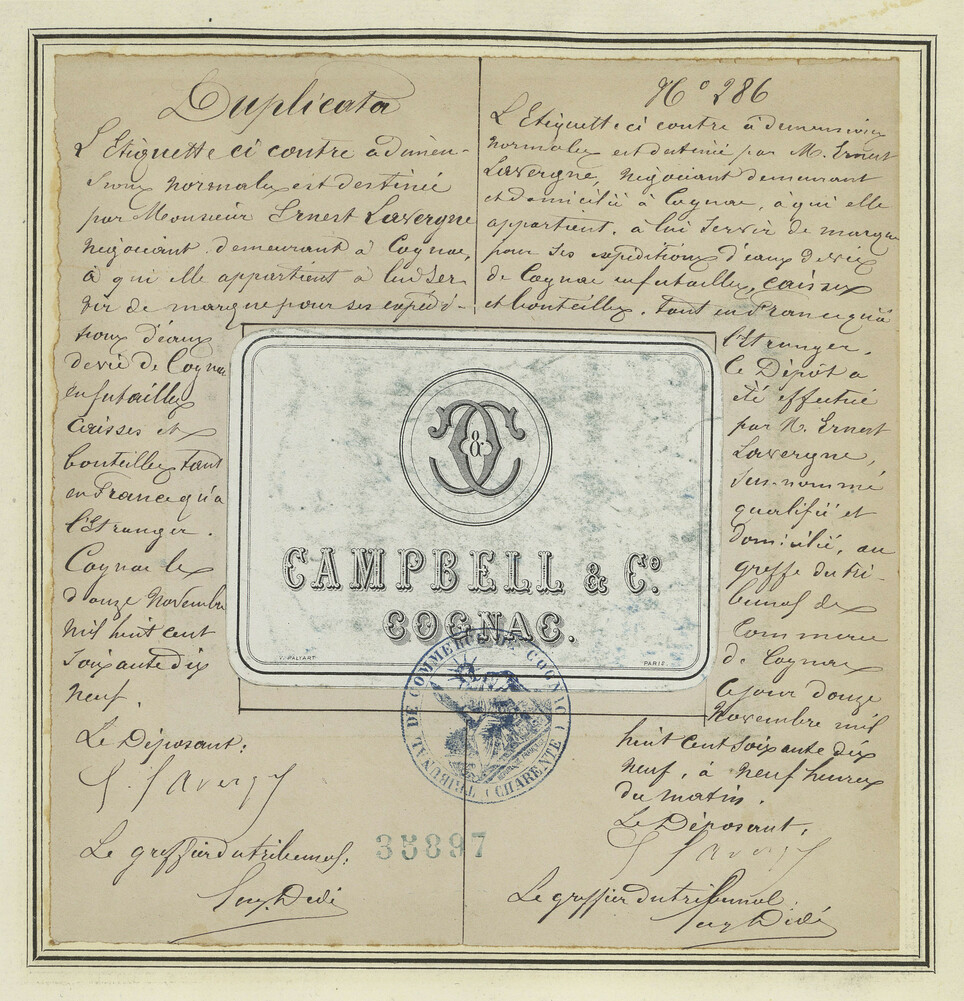 Duplicata
L'Etiquette ci contre à dimen-
sions normales est destinée
par Monsieur Ernest Lavergne
négociant demeurant à Cognac,
à qui elle appartient à lui ser
vir de marque pour ses expédi-
tions d'eaux
de vie de Cognac
en futailles
Caisses et
bouteilles tant
en France qu'à
l'Etranger.
Cognac le
douze Novembre
mil huit cent
soixante dix
neuf.
Le Déposant:
E. Lavergne
Le greffier du tribunal:
N° 286
L'Etiquette ci contre à dimensions
normales est destinée par M. Ernest
Lavergne, négociant demeurant
et domicilié à Cognac, à qui elle
appartient, à lui servir de marque
pour ses expéditions d'eaux de vie
de Cognac en futailles, caisses
et bouteilles, tant en France qu'à
l'Etranger.
Ce Dépôt a
été effectué
par M. Ernest
Lavergne,
sus-nommé
qualifié et
domicilié, au
greffe du tri-
bunal de
Commerce
de Cognac
ce jour douze
Novembre mil
huit cent soixante dix
neuf, à neuf heures
du matin.
Le Déposant,
E. Lavergne
Le greffier du tribunal:
C&C
CAMPBELL & Co.
COGNAC.
V. PALYART PARIS
TRIBUNAL DE COMMERCE DE COGNAC (CHARENTE)
35897